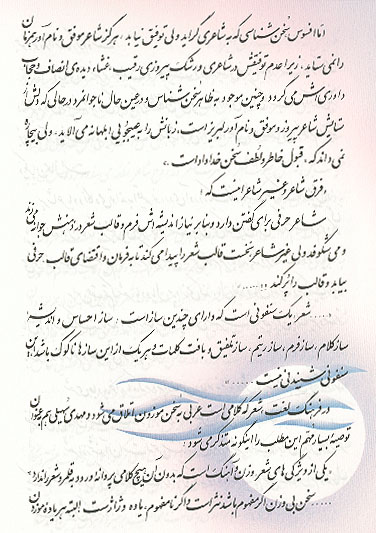 امّا افسوس سُخن شناسی که به شاعری گراید ولی توفیق نیابد، هرگز شاعر موفق و نام‌آور همزمان
را نمی‌ستاید، زیرا عدم توفیقش در شاعری و رشک پیروزی رقیب، غشاء دیده‌ی انصاف و حجاب
داوری‌اش می‌گردد و چنین موجود به ظاهر سخن شناس و در عین حال ناجوانمرد در حالی که دلش از
ستایش شاعر پیروز و موفق و نام‌آور لبریز است، زبانش را به عیبجویی ابلهانه می‌آلاید، ولی بیچاره
نمی‌داند که، قبول خاطر و لطف سُخن خداداد است.»
«فرق شاعر و غیر شاعر اینست که:
شاعر حرفی برای گفتن دارد و بنا بر نیاز اندیشه‌اش فرم و قالب شعر در ذهنش جوانه می‌زند
و می‌شکوفد ولی غیر شاعر نخست قالب شعر را پیدا می‌کند تا به فرمان و اقتضای قالب حرفی
بیابد و قالب را پُر کند.......»
«..... شعر یک سنفونی است که دارای چندین ساز است: ساز احساس و اندیشه،
ساز کلام، ساز فرم، ساز ریتم، ساز تلفیق و بافت کلمات و هر یک از این سازها ناکوک باشد، آن
سنفونی شنیدنی نیست......»
در فرهنگ لغت، شعر که کلامی است عربی به سُخن موزون اطلاق می‌شود و مهدی سهیلی هم به عنوان
توصیه بسیار مهم این مطلب را اینگونه متذکر می‌شود:
«یکی از ویژگی‌های شعر وزن و آهنگ است که بدون آن هیچ کلامی پروانه ورود به قلمرو شعر را ندارد؛
..... سخن بی‌وزن اگر مفهوم باشد نثر است و اگر نامفهوم، یاوه و ژاژ است البته هر یاوه موزون